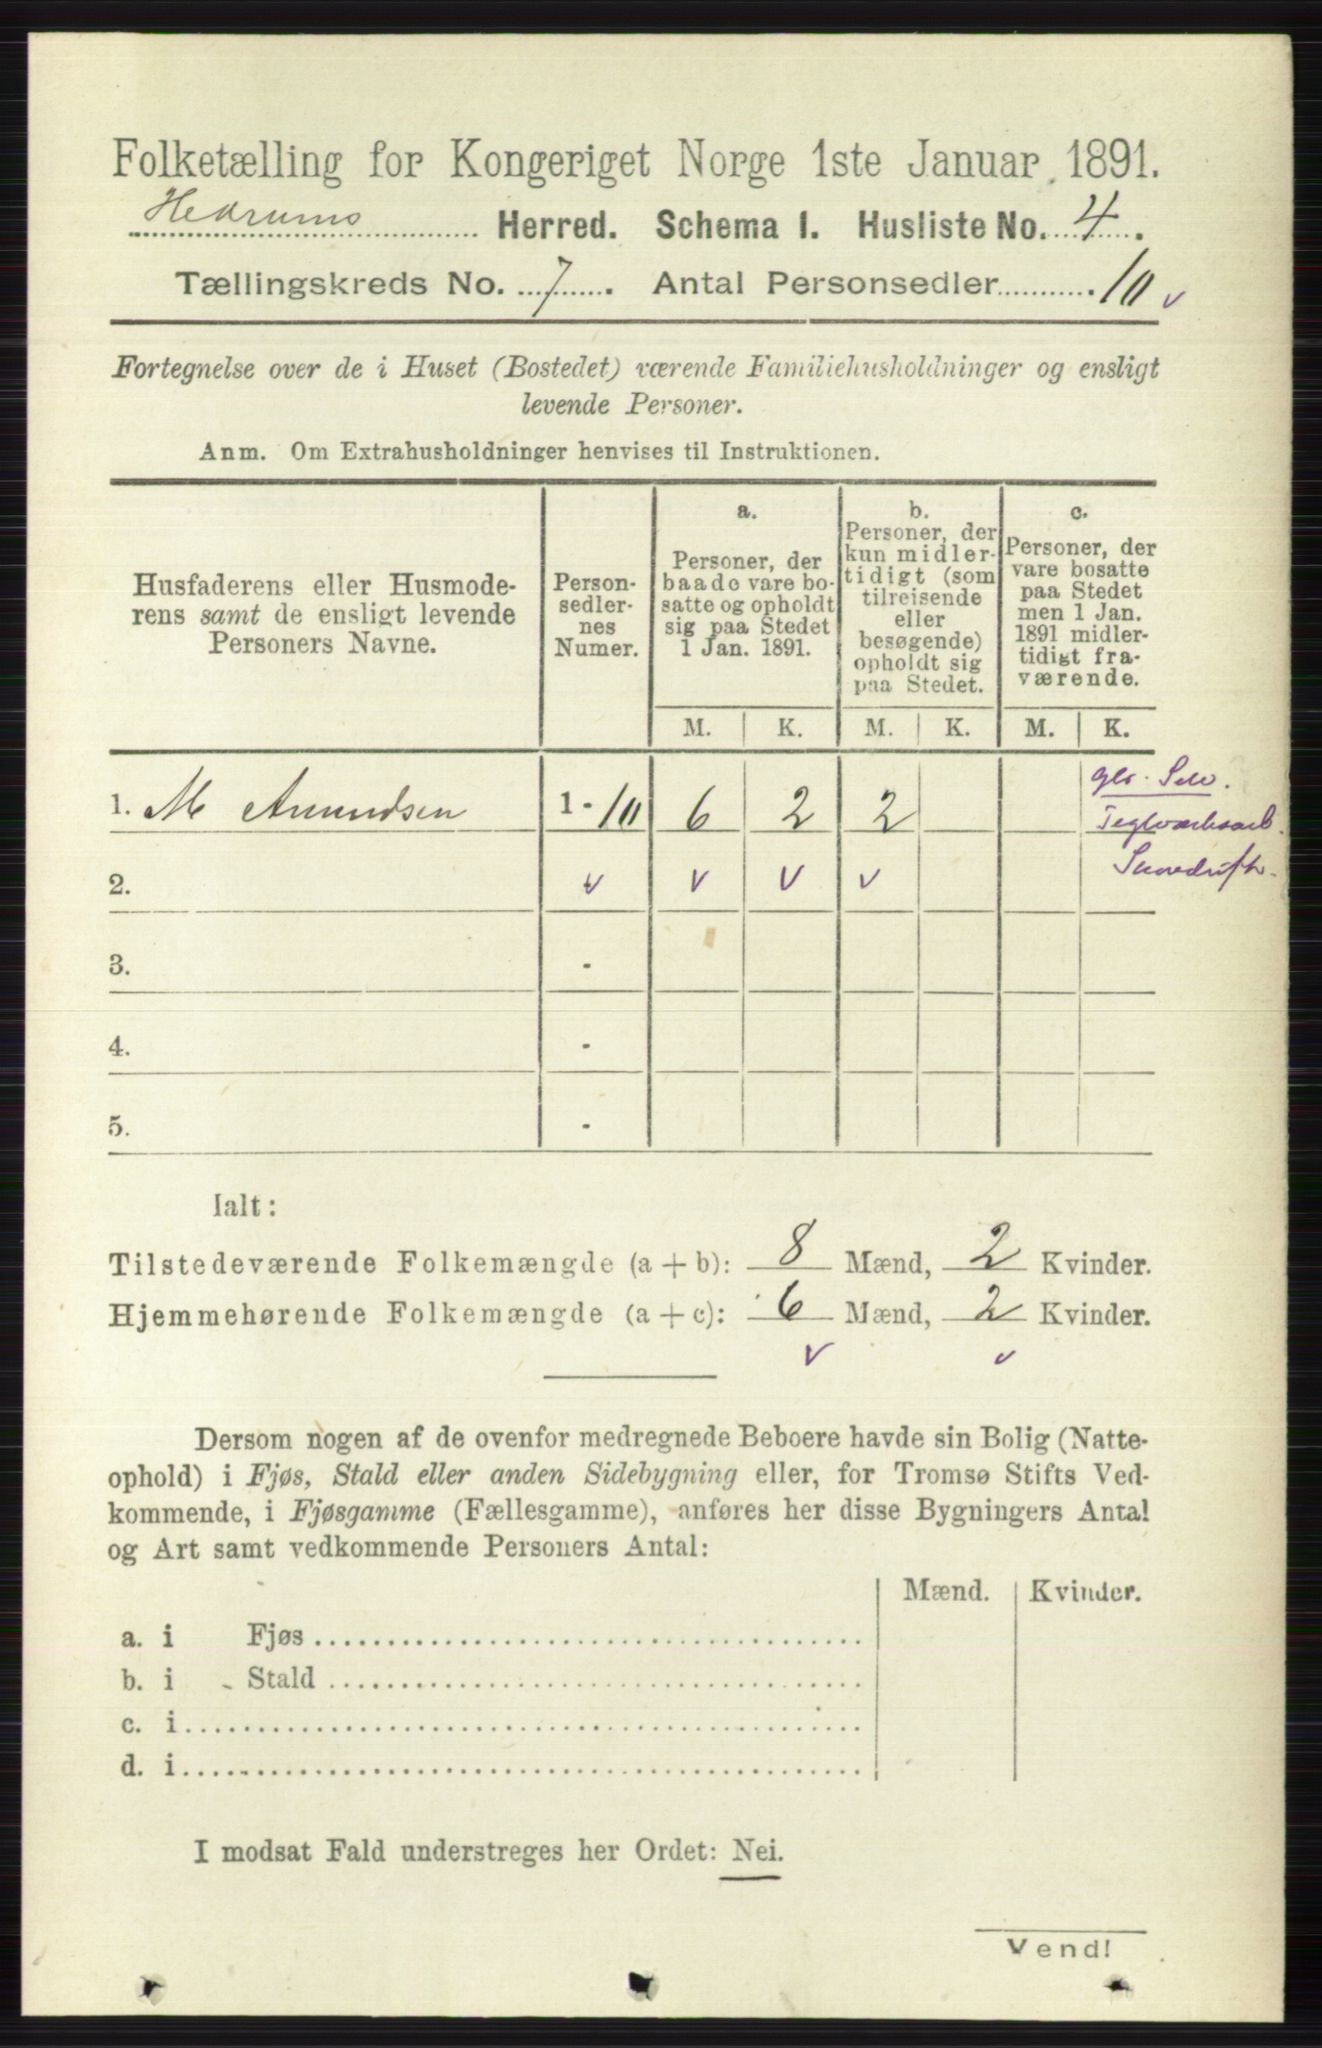 Folketælling for Kongeriget Norge 1ste Januar 1891.
Hedrums Herred. Schema 1. Husliste No. 4.
Tællingskreds No. 7. Antal Personsedler 10 v
Fortegnelse over de i Huset (Bostedet) værende Familiehusholdninger og ensligt
levende Personer.
Anm. Om Extrahusholdninger henvises til Instruktionen.
Husfaderens eller Husmode-
rens samt de ensligt levende
Personers Navne.
Person-
sedler-
nes
Numer.
a.
Personer, der
baade vare bo-
satte og opholdt
sig paa Stedet
1 Jan. 1891.
b.
Personer, der
kun midler-
tidigt (som
tilreisende
eller
besøgende)
opholdt sig
paa Stedet.
c.
Personer, der
vare bosatte
paa Stedet
men 1 Jan.
1891 midler-
tidigt fra-
værende.
M. K. M. K. M. K.
1. M Amundsen 1 - 10 6 2 2
Teglværksarb.
2. v v v v
3. -
4. -
5. -
Ialt:
Tilstedeværende Folkemængde (a + b): 8 Mænd, 2 Kvinder.
Hjemmehørende Folkemængde (a + c): 6 Mænd, 2 Kvinder.
v v
Dersom nogen af de ovenfor medregnede Beboere havde sin Bolig (Natte-
ophold) i Fjøs, Stald eller anden Sidebygning eller, for Tromsø Stifts Ved-
kommende, i Fjøsgamme (Fællesgamme), anføres her disse Bygningers Antal
og Art samt vedkommende Personers Antal:
Mænd. Kvinder.
a. i Fjøs
b. i - Stald
c. i
d. i
I modsat Fald understreges her Ordet: Nei.
Vend!